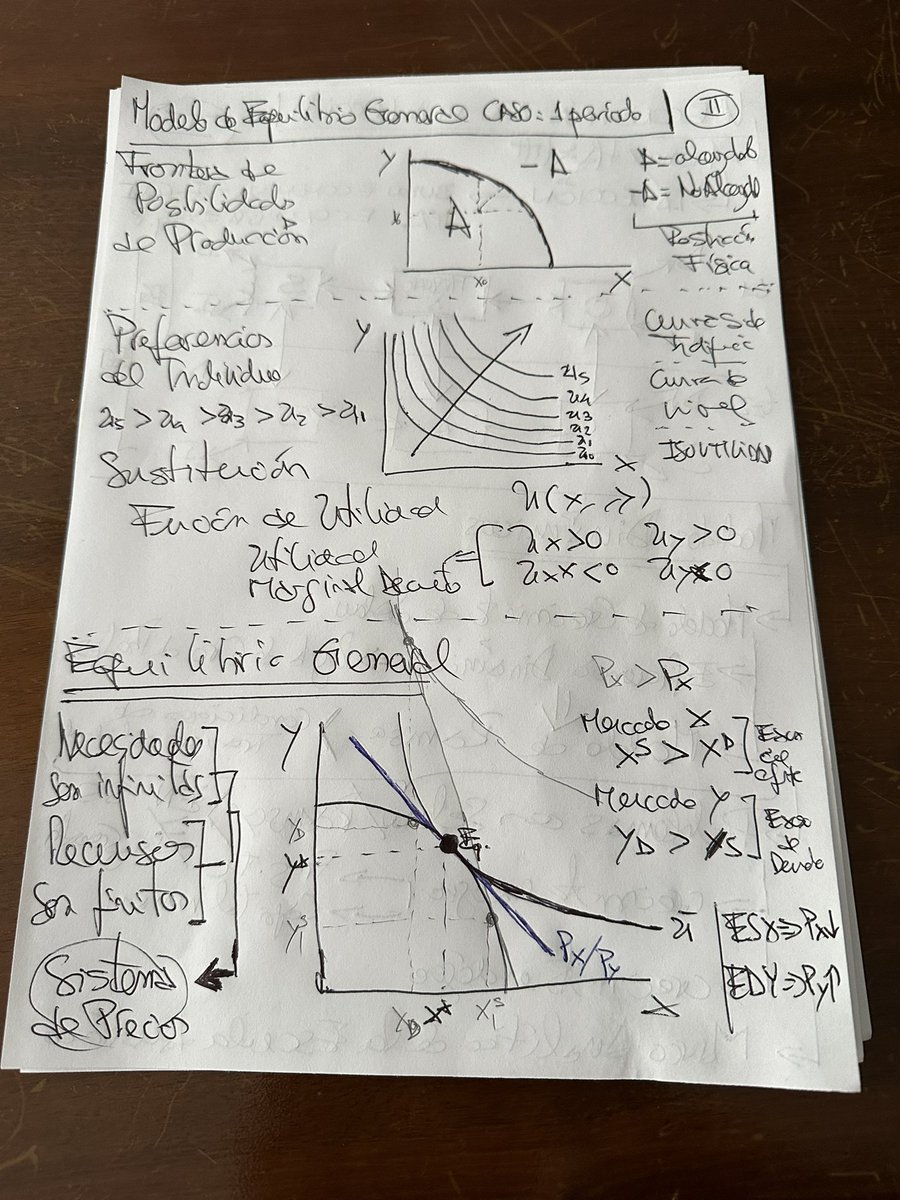 Modelo de Equilibrio General CASO: 1 período
II
Frontera de
Posibilidades
de Producción
Y
X
A
-A
X0
A = alcanzable
-A = No Alcanzado
Restricción
Física
Preferencias
del Individuo
u5 > u4 > u3 > u2 > u1
Sustitución
Y
X
u5
u4
u3
u2
u1
u0
Curvas de
Indifer
Curva de
Nivel
ISOUTILIDAD
Función de Utilidad
u(x, y)
Utilidad
Marginal Decreci
ux>0 uy>0
uxx<0
Equilibrio General
Px > Px
Necesidades
son infinitas
Recursos
son finitos
Sistema
de Precios
Y
YD
Y*
Y1S
XD X* X1S
X
Eq.
Px/Py
u
Mercado X
XS > XD
Exceso
de
Mercado Y
YD > YS
Exceso
de
Demanda
ESX⇒Px↓
EDY⇒Py↑